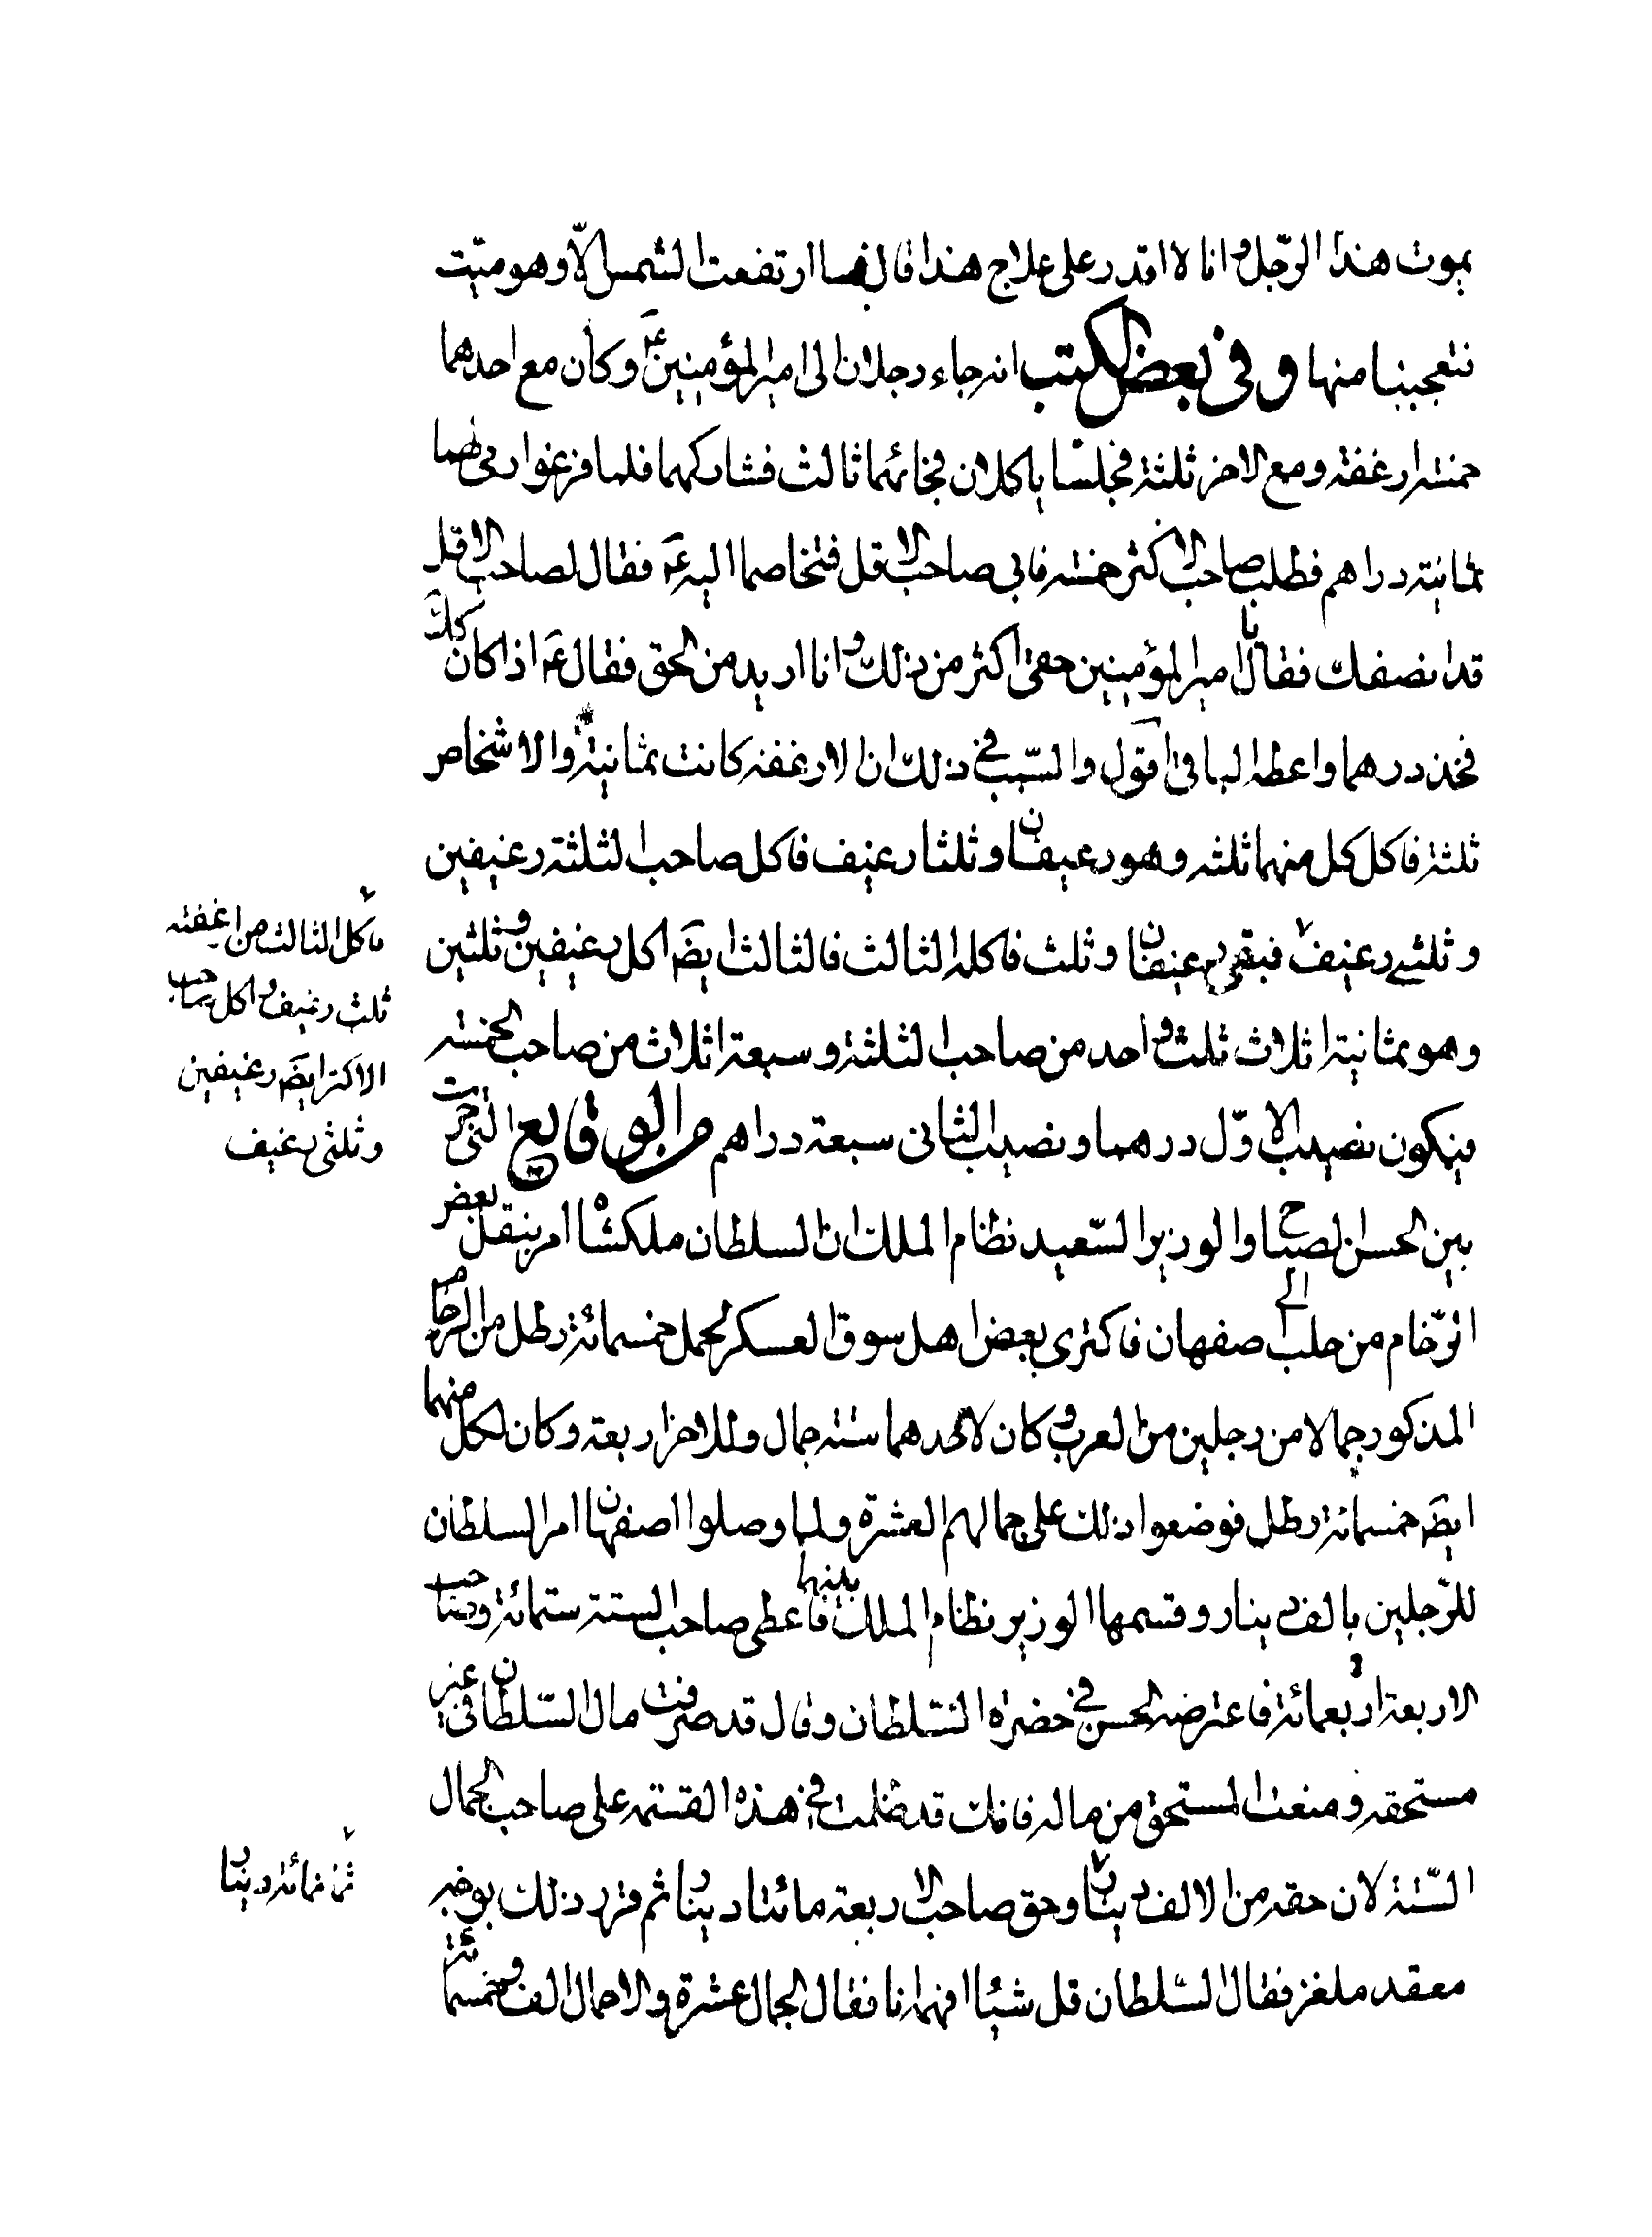 يموت هذا الرّجل وانا لا اقدر على علاج هذا قال فما ارتفعت الشمس الّا وهو ميّت
فتعجبنا منها وفى بعض الكتب انه جاء رجلان الى امير المؤمنين عَ وكان مع احدهما
خمسة ارغفة ومع الاخر ثلثة فجلسا ياكلان فجائهما ثالث فشاركهما فلما فرغوا رمى لهما
ثمانية دراهم فطلب صاحب الاكثر خمسة فابى صاحب الاقل فتخاصما اليه عَ فقال لصاحب الاقل
قد انصفك فقال يا امير المؤمنين حقى اكثر من ذلك وانا اريد من الحق فقال عَ اذا كان كذلك
فخذ درهما واعطه الباقى اقول والسّبب فى ذلك ان الارغفة كانت ثمانية والاشخاص
ثلثة فاكل كل منهما ثلثه وهو رغيفان وثلثا رغيف فاكل صاحب الثلثة رغيفين
وثلثى رغيف فبقى رغيفان وثلث فاكله الثالث فالثالث ايضَ اكل رغيفين وثلثين
وهو ثمانية اثلاث ثلث واحد من صاحب الثلثة وسبعة اثلاث من صاحب الخمسة
فيكون نصيب الاوّل درهما ونصيب الثانى سبعة دراهم من الوقايع التى جرت
بين الحسن الصباح والوزير السّعيد نظام الملك ان السلطان ملكشاه امر بنقل بعض
الرّخام من حلب الى صفهان فاكترى بعض اهل سوق العسكر لحمل خمسمائة رطل من الرخام
المذكور جمالا من رجلين من العرب وكان لاحدهما ستة جمال وللاخر اربعة وكان لكل منهما
ايضَ خمسمائة رطل فوضعوا ذلك على جمالهم العشرة ولما وصلوا اصفهان امر السلطان
للرّجلين بالف دينار وقسمها الوزير نظام الملك بينهما فاعطى صاحب الستة ستمائة وصاحب
الاربعة اربعمائة فاعترضه الحسن فى حضرة السّلطان وقال قد صرفت مال السّلطان فى غير
مستحقه ومنعت المستحق من ماله فانك قد ظلمت فى هذه القسمة على صاحب الجمال
السّتة لان حقه من الالف دينار وحق صاحب الاربعة مائتا دينار ثم قرر ذلك بوجه
معقد ملغز فقال السّلطان قل شيئا افهم انا فقال الجمال عشرة والاحمال الف وخمسمائة
ماكل الثالث من ارغفته
ثلث رغيف واكل صاحب
الاكثر ايضَ رغيفين
وثلثى رغيف
ثمانمائة دينار